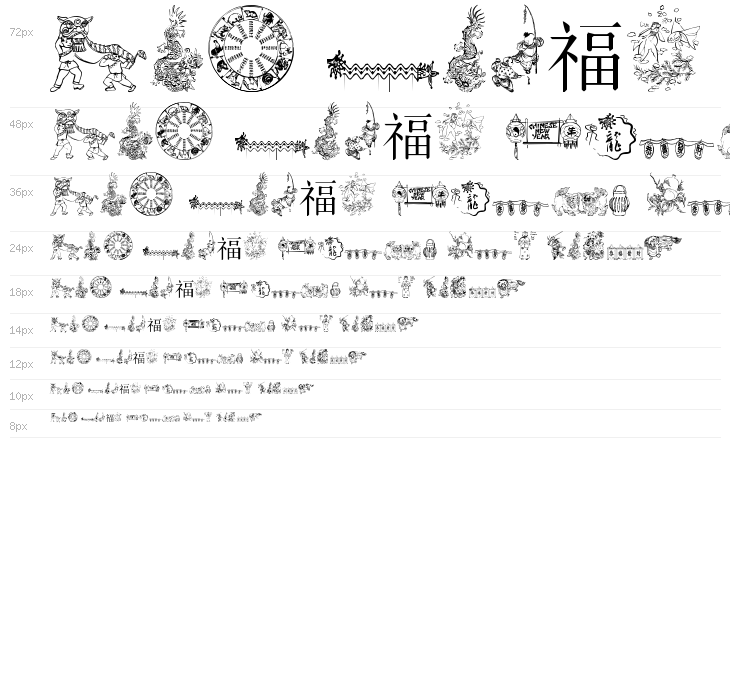 72px 福
48px 福 CHINESE NEW YEAR 龍
36px 福 CHINESE NEW YEAR 龍
24px 福
18px 福
14px 福
12px 福
10px 福
8px 福